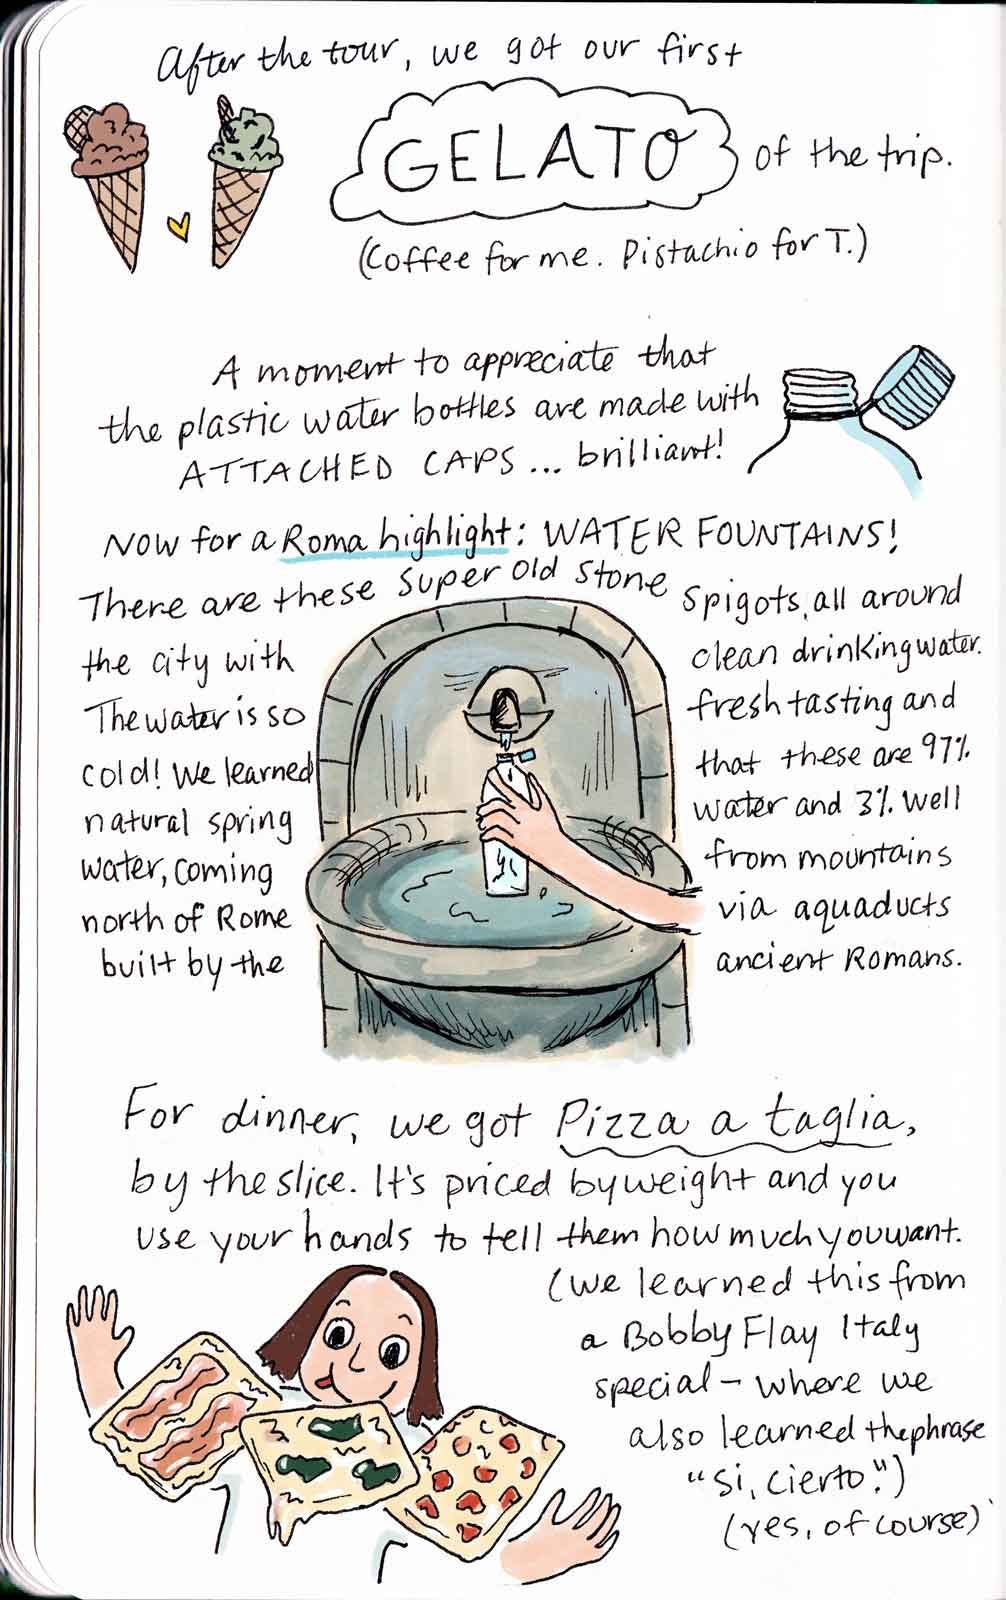 After the tour, we got our first
GELATO of the trip.
(Coffee for me. Pistachio for T.)
A moment to appreciate that
the plastic water bottles are made with
ATTACHED CAPS ... brilliant!
Now for a Roma highlight: WATER FOUNTAINS!
There are these super old stone spigots, all around
the city with clean drinking water.
The water is so fresh tasting and
cold! We learned that these are 97%
natural spring water and 3% well
water, coming from mountains
north of Rome via aquaducts
built by the ancient Romans.
For dinner, we got Pizza a taglia,
by the slice. It's priced by weight and you
use your hands to tell them how much you want.
(We learned this from
a Bobby Flay Italy
special – where we
also learned the phrase
"Si, cierto.")
(yes, of course)